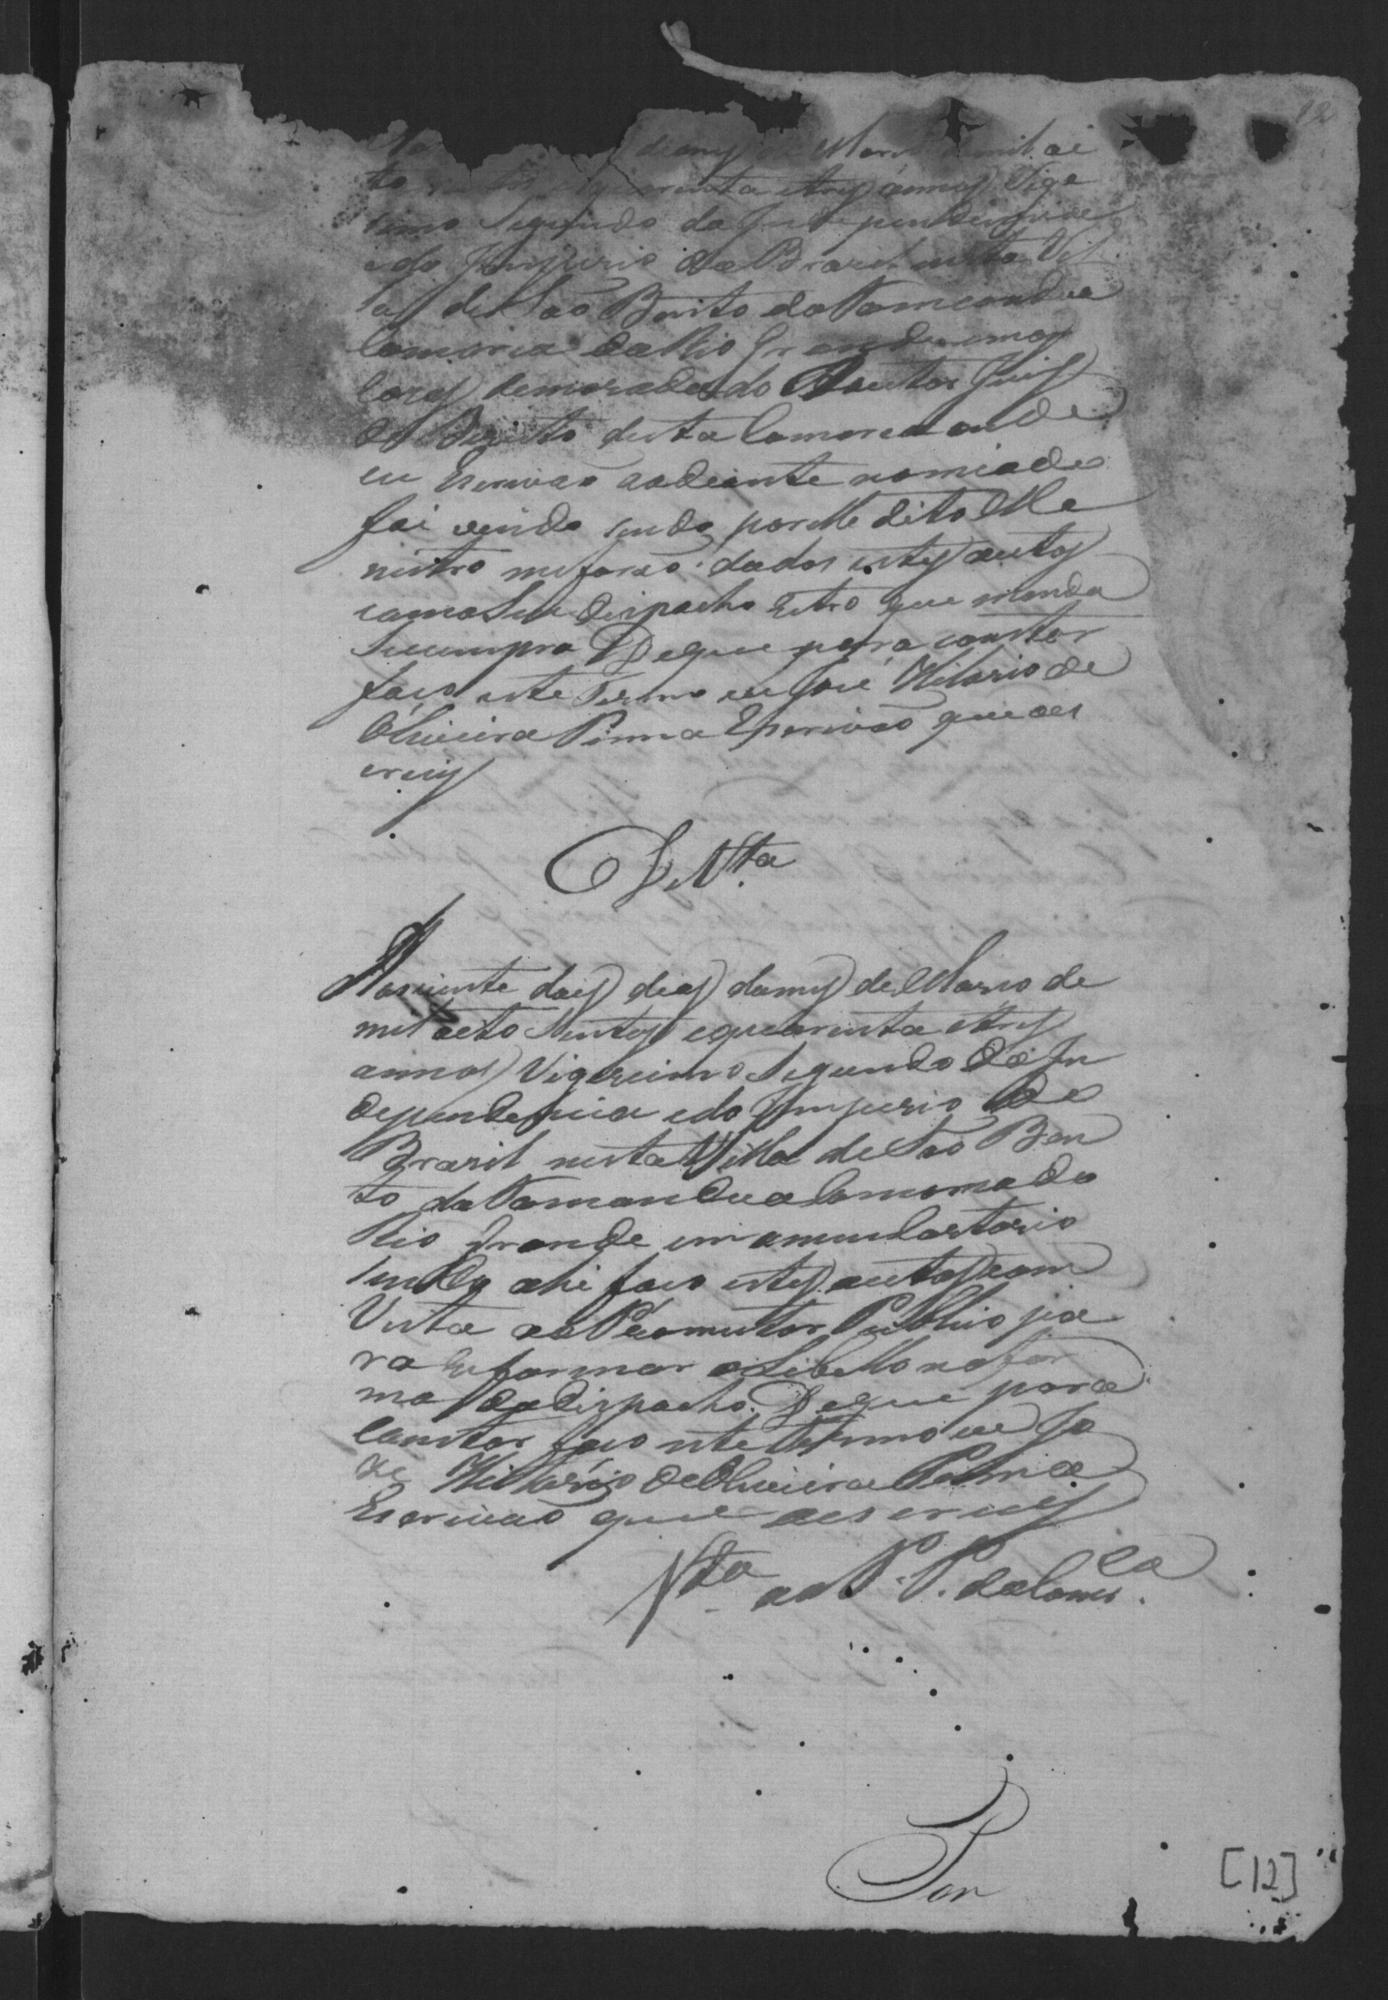 12
de Março de mil oi
to centos e quarenta e tres annos Vige
cimo Segundo da Independencia
e do Imperio do Brazil nesta Vil
la de São Bento do Tamandua
Comarca do Rio Grande em as
Cazas de morada do Doutor Juis
de Direito desta Comarca onde
eu Escrivão aodiante nomiado
foi vindo sendo por elle dito Me
nistro me forão dados estes autos
com o Seu despacho retro que manda
Se cumpra De que para constar
faço este Termo eu José Hilario de
Oliveira Penna Escrivão que o es
crevy
De V.ta
Aos vinte dous dias do mes de Março de
mil oito Sentos e quarenta e tres
annos Vigecimo Segundo da In
dependencia e do Imperio do
Brazil nesta Villa de São Ben
to do Tamandua Comarca do
Rio Grande em o meu Cartorio
sendo ahi faço estes autos com
Vista ao Promutor Publico pa
ra formar o Libello na for
ma do dispacho. De que para
Constar faço este termo eu Jo
ze Hilario de Oliveira Penna
Escrivão que o escrevy
V.ta ao P. P. da Com.ca
Por
[12]